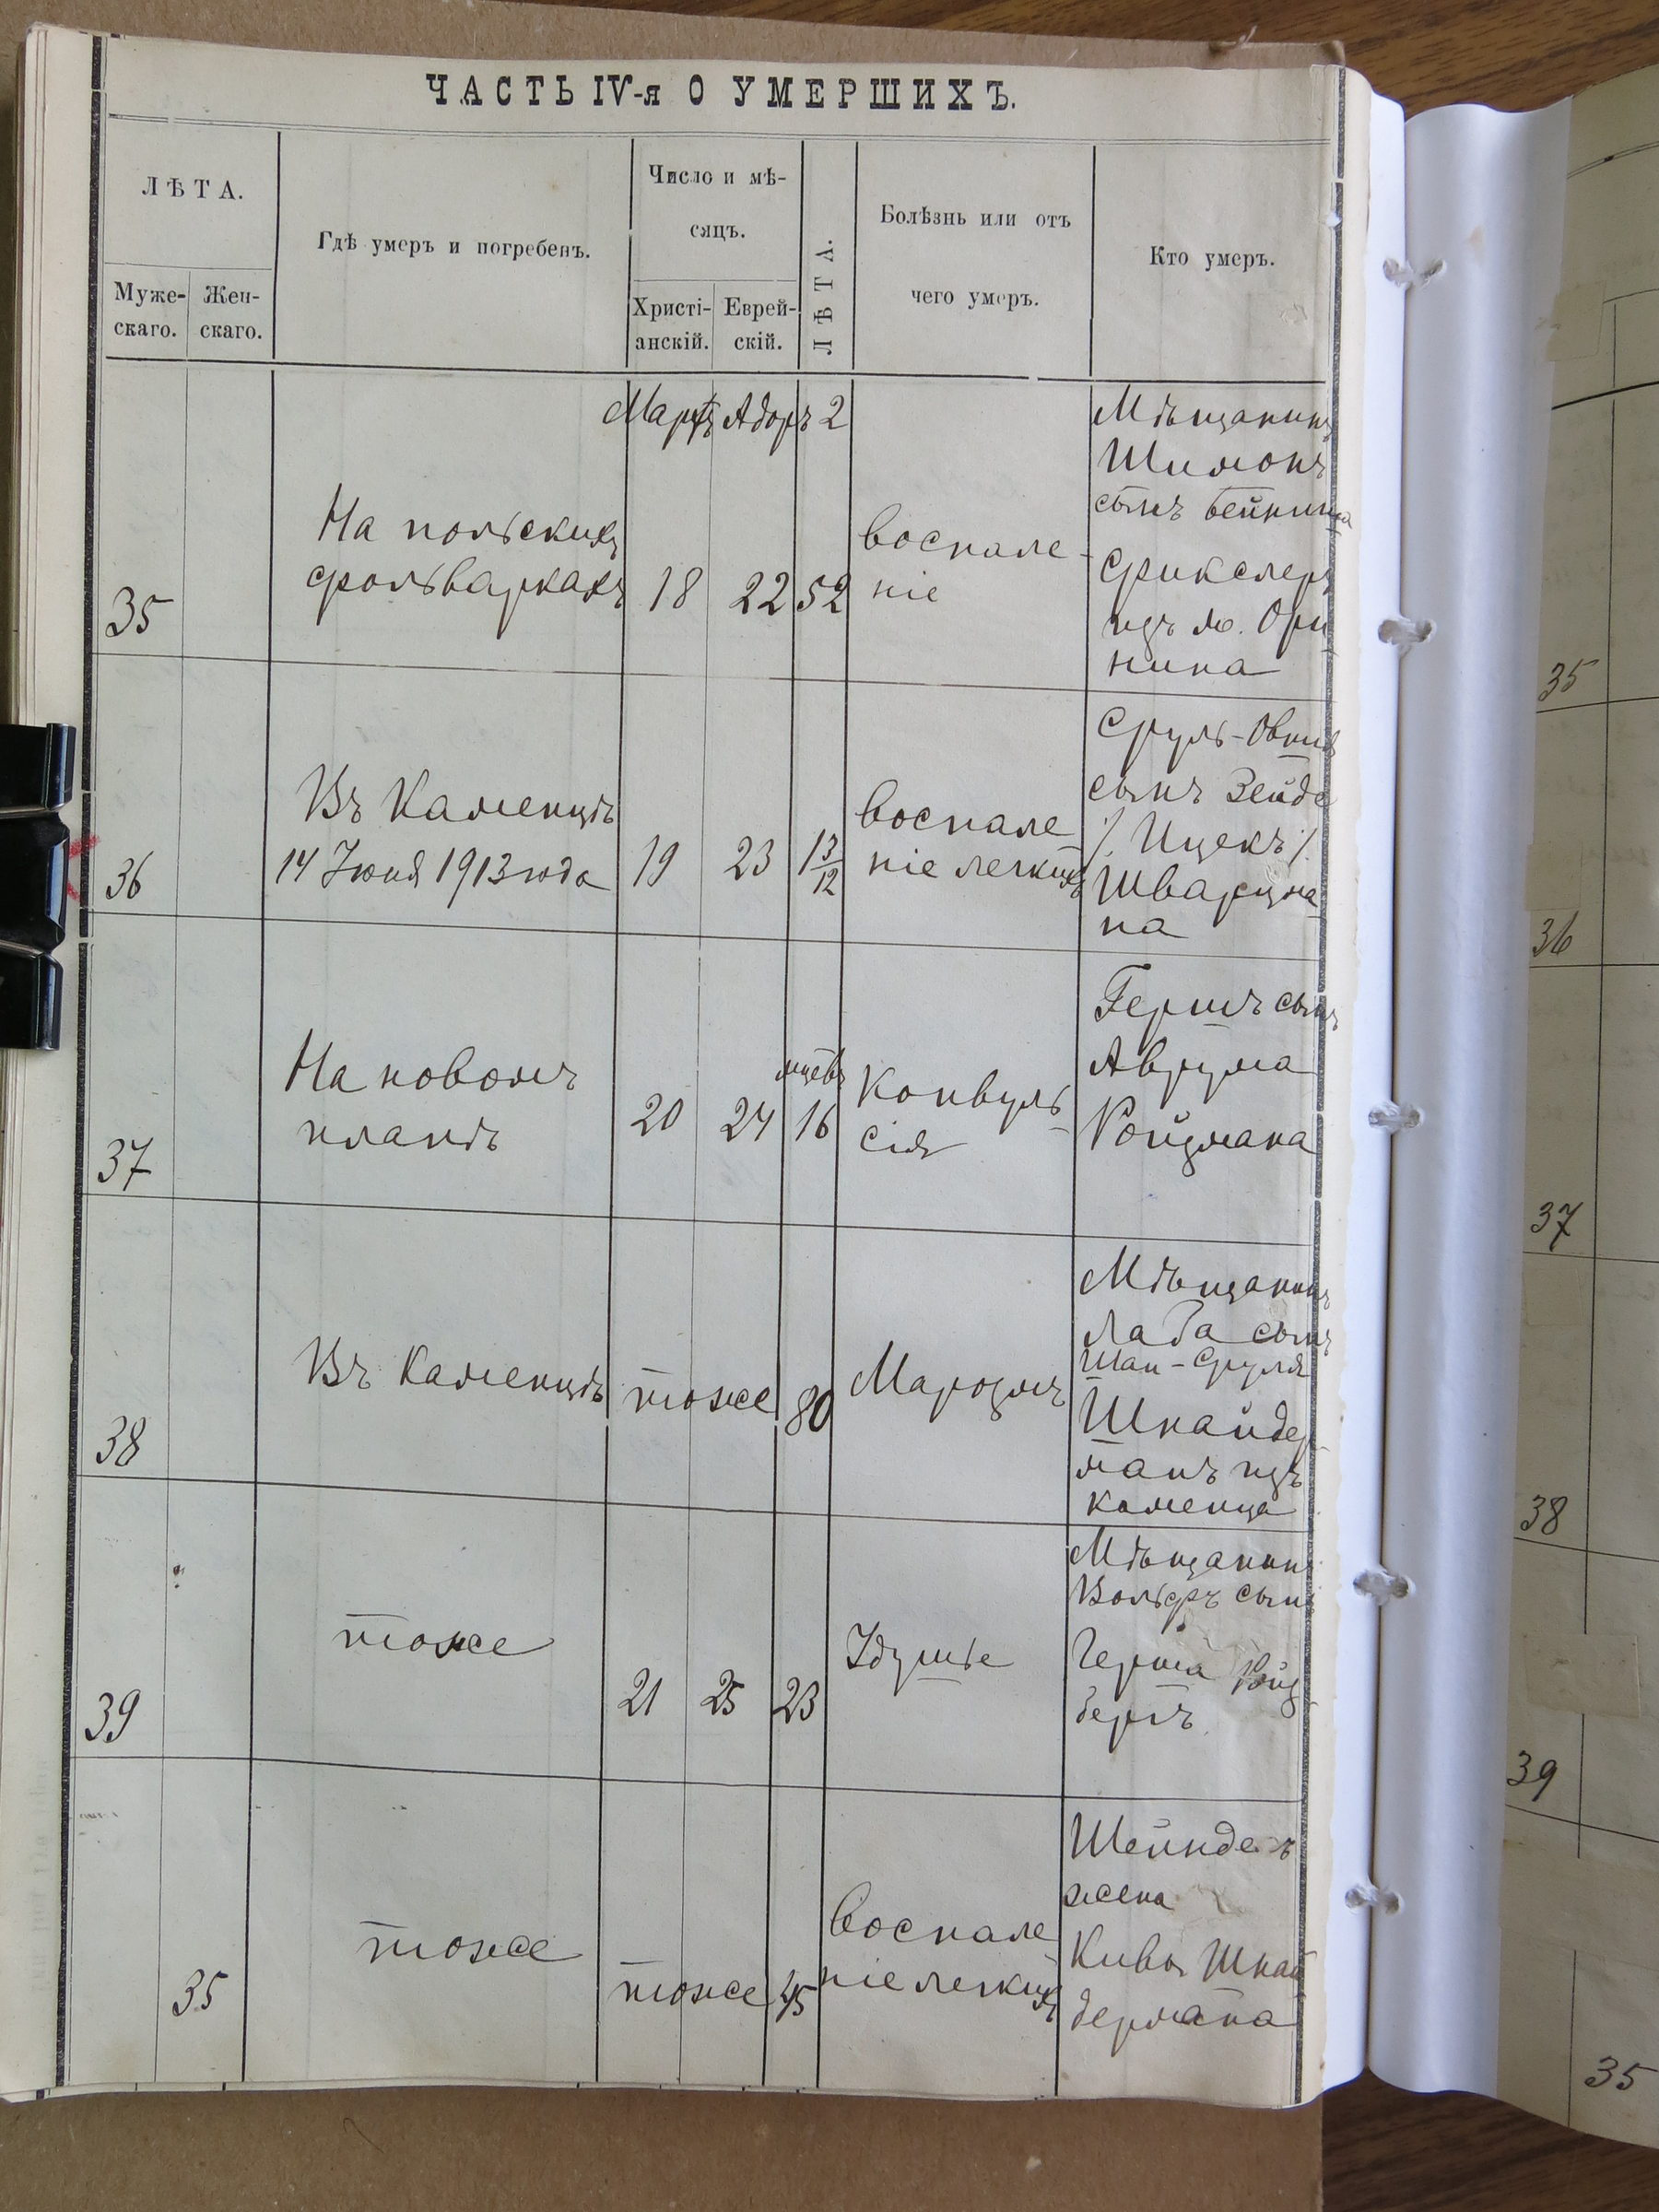 ЧАСТЬ IV-я О УМЕРШИХЪ.
ЛѢТА.
Муже-
скаго.
Жен-
скаго.
Гдѣ умеръ и погребенъ.
Число и мѣ-
сяцъ.
Христі-
анскій.
Еврей-
скій.
ЛѢТА.
Болѣзнь или отъ
чего умеръ.
Кто умеръ.
Мартъ Адоръ 2
35
На польскихъ
фольваркахъ
18 22 52
воспале-
ніе
Мѣщанинъ
Шимонъ
сынъ Бейниша
Фикслеръ
изъ м. Ори-
нина
36
Въ Каменцѣ
14 Іюня 1913 года
19 23 1 3/12
воспале
ніе легкихъ
Сруль-Овшія
сынъ Зейде
/. Ицекъ /.
Шварцма-
на
37
На новомъ
планѣ
20 24
мцевъ
16
Конвуль-
сія
Гершъ сынъ
Аврума
Ройзмана
38
Въ Каменцѣ
тоже 80
Маразмъ
Мѣщанинъ
Лаба сынъ
Шай-Сруля
Шнайдер-
манъ изъ
Каменца
39
тоже
21 25 23
Удушіе
Мѣщанинъ
Вольфъ сынъ
Герша Ройз
бергъ
35
тоже
тоже 45
Воспале-
ніе легкихъ
жена
Кивы Шнай
дермана
35
36
37
38
39
35